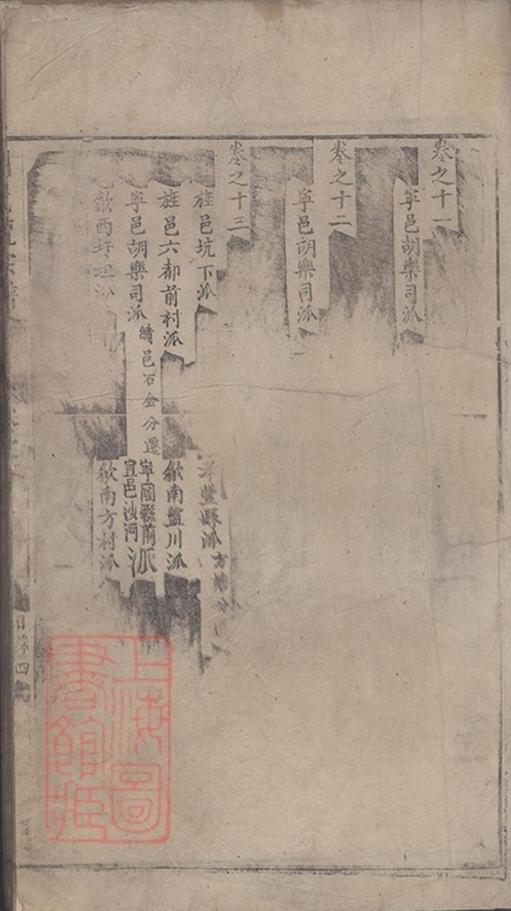 卷之十一
寧邑胡樂司派
卷之十二
寧邑胡樂司派
卷之十三
旌邑坑下派
豐縣派 方塘分遷
旌邑六都前村派
歙南藍川派
寧邑胡樂司派 績邑石金分遷
寧國縣前
宣邑沙河
派
歙西
歙南方村派
目錄四
上海圖
書館